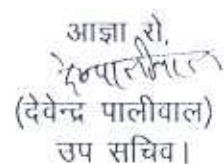 आज्ञा से,
(देवेन्द्र पालीवाल)
उप सचिव।